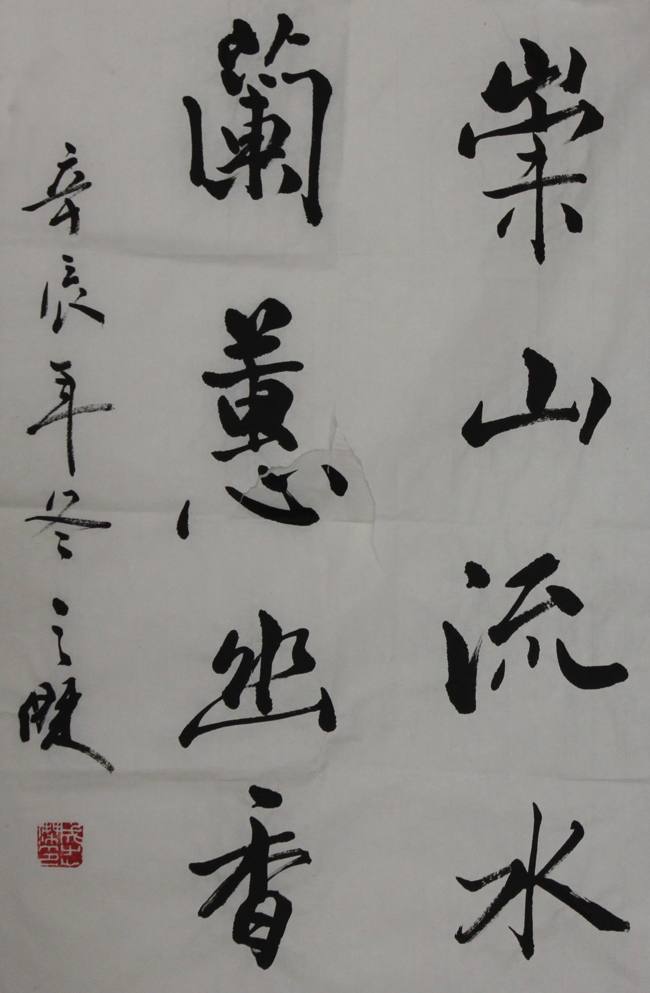 崇山流水
蘭蕙幽香
辛辰年冬之